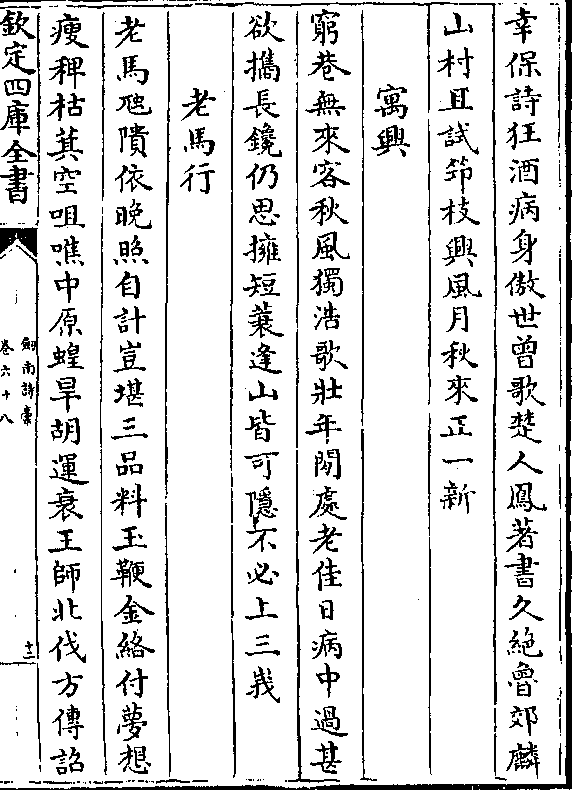 幸保詩狂酒病身傲世曾歌楚人鳳著書久絶魯郊麟
山村且試笻枝興風月秋來正一新
寓興
窮巷無來客秋風獨浩歌壯年閑處老佳日病中過甚
欲攜長鑱仍思擁短蓑逢山皆可隱不必上三峩
老馬行
老馬虺隤依晚照自計豈堪三品料玉鞭金絡付夢想
瘦稗枯萁空咀噍中原蝗旱胡運衰王師北伐方傳詔
欽定四庫全書
劒南詩稾
卷六十八
十二